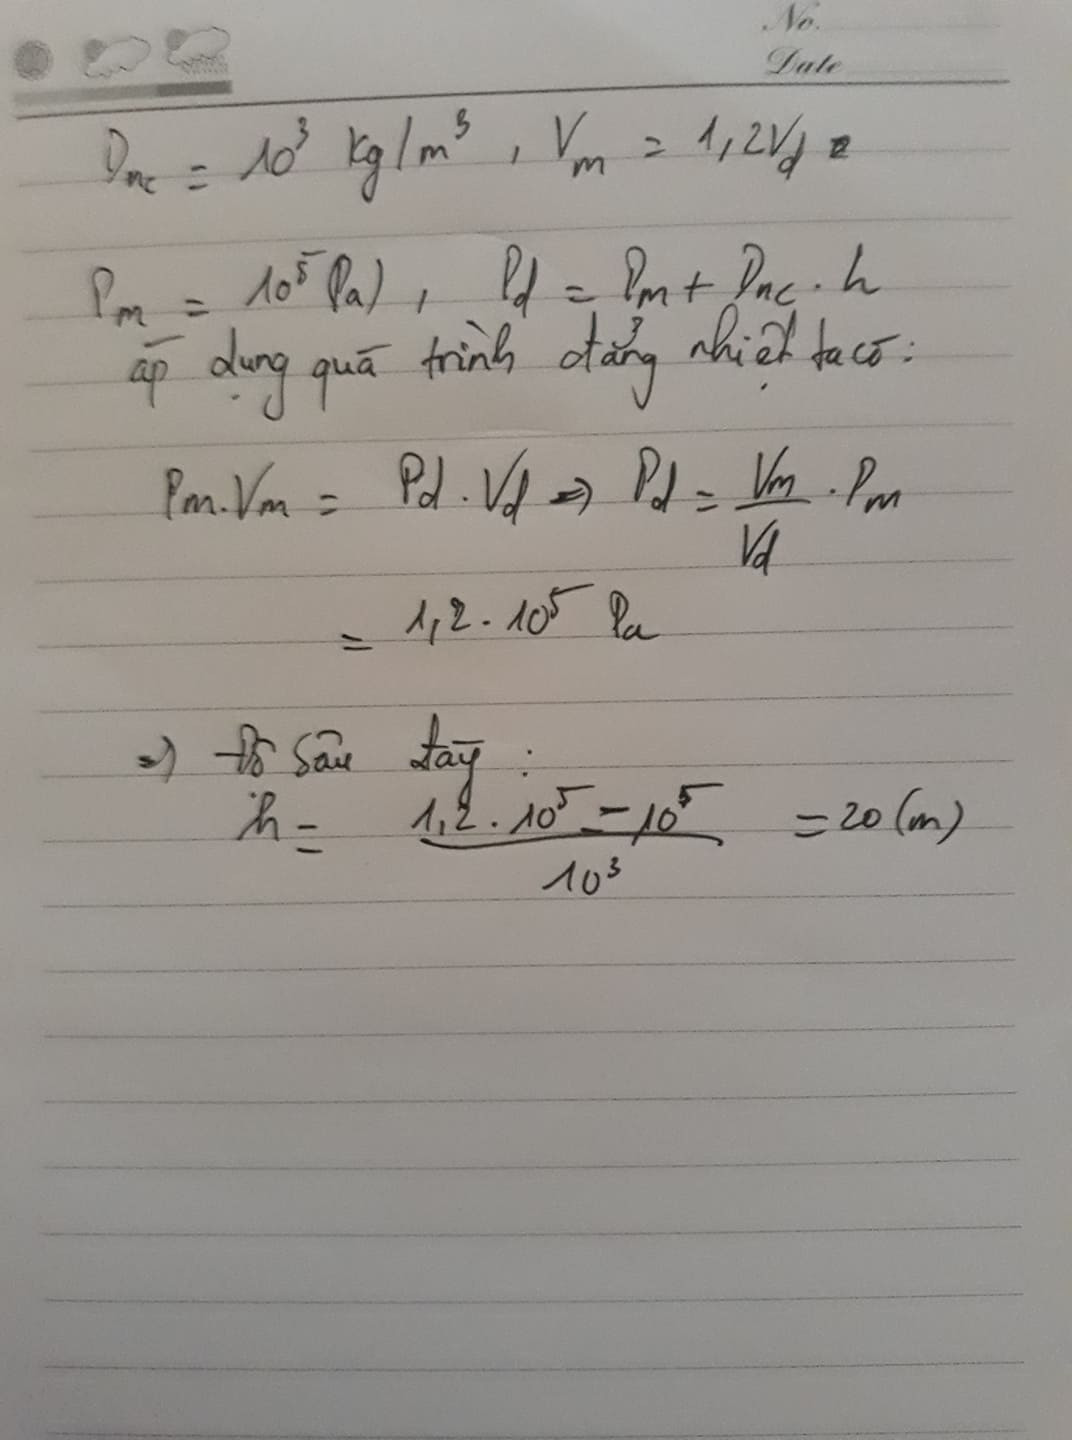 No.
Date
Dnc = 10³ kg/m³, Vm = 1,2Vd
Pm = 10⁵ (Pa), Pd = Pm + Dnc . h
áp dụng quá trình đẳng nhiệt ta có:
Pm.Vm = Pd.Vd => Pd = Vm/Vd . Pm
= 1,2.10⁵ Pa
=> Độ sâu đáy :
h = (1,2.10⁵ - 10⁵)/10³ = 20 (m)